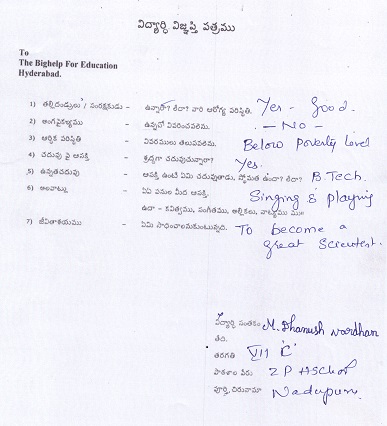 విద్యార్థి విజ్ఞప్తి పత్రము
To
The Bighelp For Education
Hyderabad.
1) తల్లిదండ్రులు / సంరక్షకుడు - ఉన్నారా? లేదా? వారి ఆరోగ్య పరిస్థితి. Yes - Good.
2) అంగవైకల్యము - ఉన్నచో వివరించవలెను. - No -
3) ఆర్థిక పరిస్థితి - వివరములు తెలుపవలెను. Below Poverty Level
4) చదువు పై ఆసక్తి - శ్రద్ధగా చదువుచున్నారా? Yes.
5) ఉన్నతచదువు - ఆసక్తి ఉంటే ఏమి చదువుతాడు, స్తోమత ఉందా? లేదా? B.Tech.
6) అలవాట్లు - ఏఏ పనుల మీద ఆసక్తి. Singing & playing
ఉదా - కవిత్వము, సంగీతము, అల్లికలు, నాట్యము
7) జీవితాశయము - ఏమి సాధించాలనుకుంటున్నది. To become a
great Scientest.
విద్యార్థి సంతకం M. Dhanush vardhan
తేది.
తరగతి VII 'C'
పాఠశాల పేరు Z P HSchol
పూర్తి చిరునామా Nadupuru